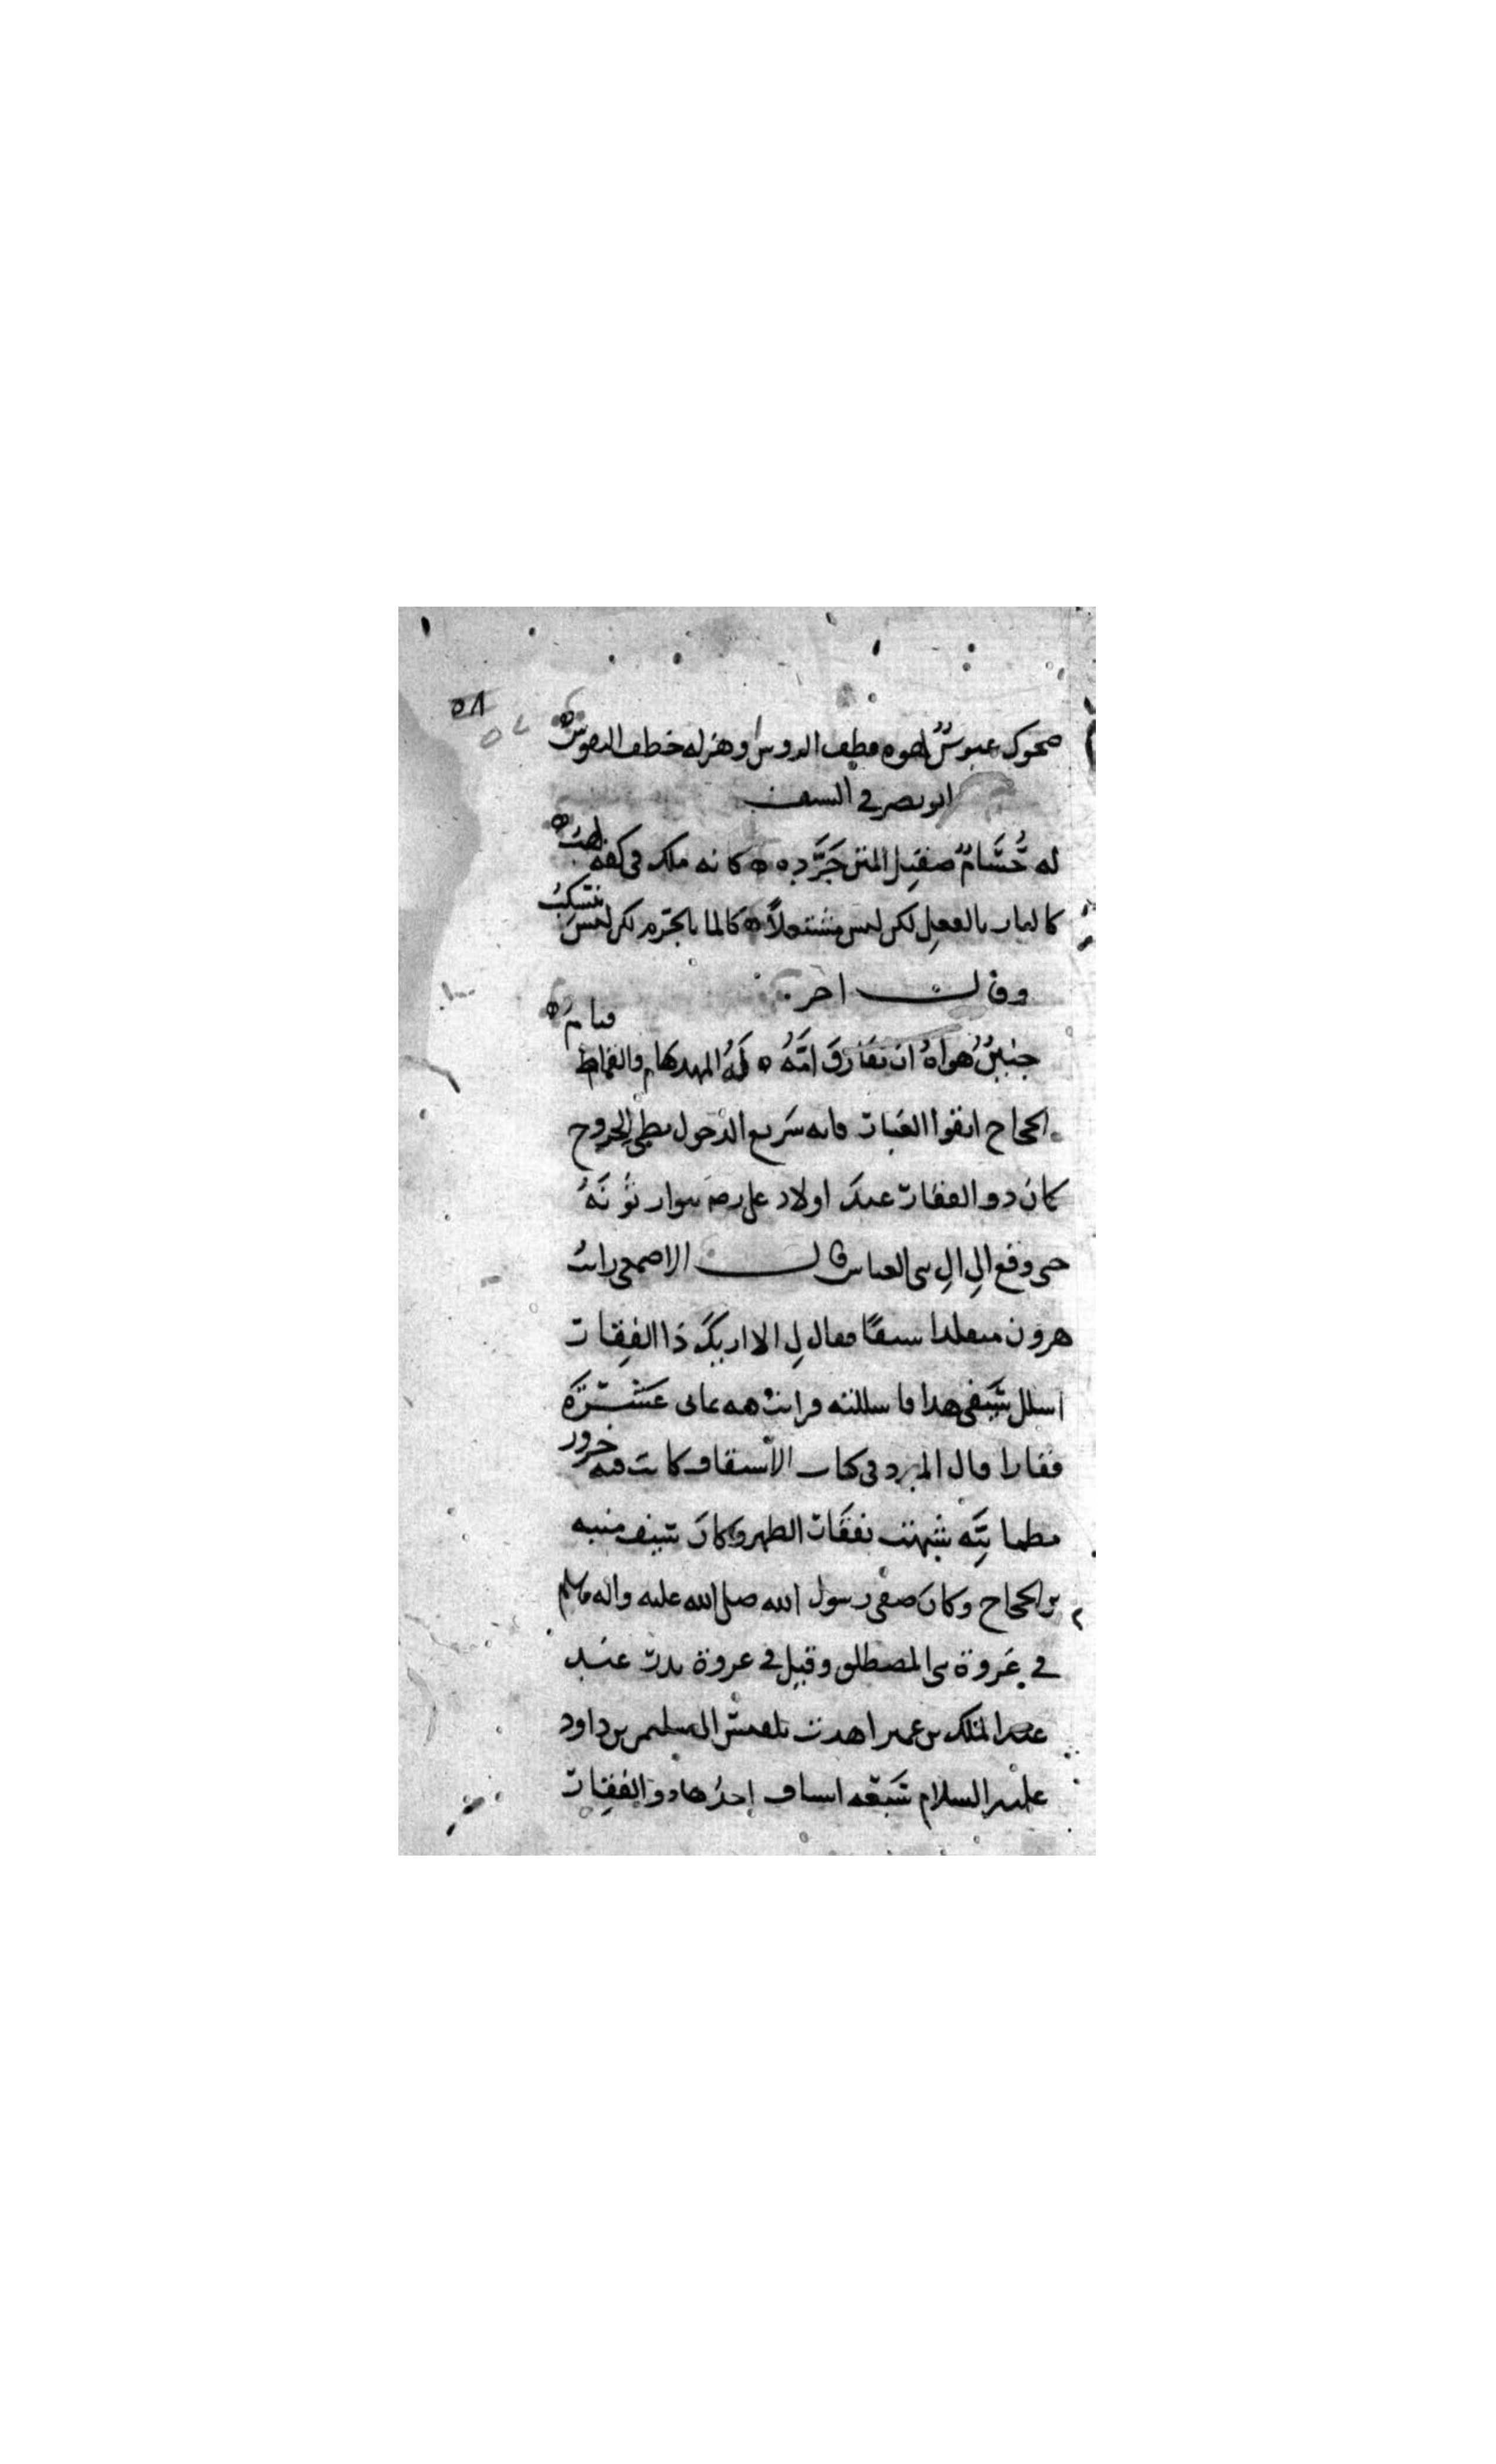 ضحوك عبوسٌ لهوه قطف الرؤس وهزله خطف النفوس
ابو نصر في السيف
له حُسَامٌ صقيل المتن جَرَّده ه كانه ملك في كفه لهبُ
كالنار بالفعل لكن ليس مشتعلاً ه كالما بالجرم لكن ليس ينسكبُ
وقال اخر
جنينٌ هواهُ ان يفارق امَّهُ ه لَهُ المهد هام والقماط قيامُ
الحجاج اتقوا الغبار فانه سريع الدخول بطي الخروج
كان ذو الفقار عند اولاد علي رضه يتوارثونَهُ
حتى وقع الى ال بني العباس قال الاصمعي رايت
هرون متقلدا سيفًا فقال لي الا اريك ذا الفقار
اسلل سَيفي هذا فاسللته فرايت فيه ثماني عَشْرَة
فقارا قال المبرد في كتاب الاشتقاق كانت فيه حزوز
مطمانَّه شبهت بفقار الظهر وكان سيف منبه
بن الحجاج وكان صفي رسول الله صلى الله عليه واله وسلم
في غزوة بني المصطلق وقيل في غزوة بدر عند
عبد الملك بن عمير اهدت بلقيس الى سليمن بن داود
عليه السلام سَبعه اسياف احدُها ذو الفقار
٥٨